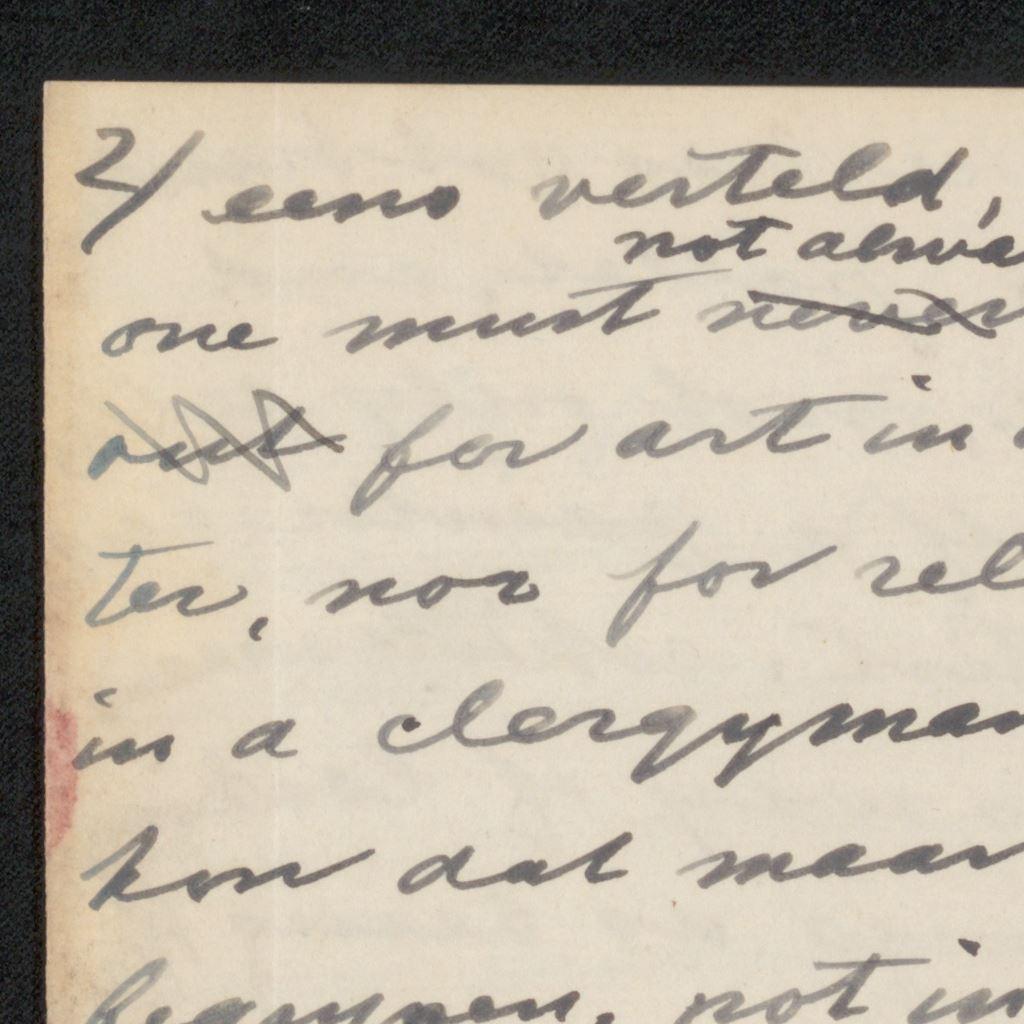 2/ eens verteld,
not alwa
one must never
out for art in
ter, nor for rel
in a clergyman
kon dat maar
begrypen, not in